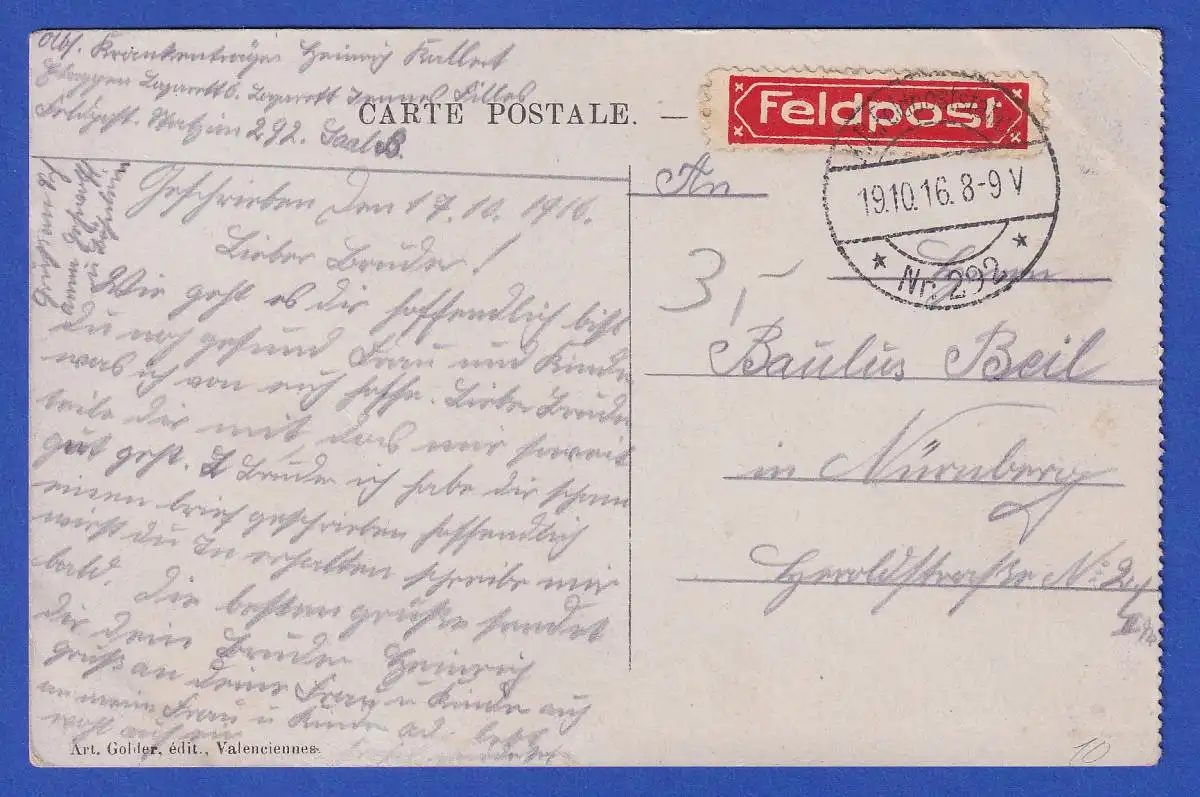 Abs. Krankenträger Heinrich Kallert
Lazarett
Feldpost. Station 292. Saal B.
CARTE POSTALE. —
Feldpost
19.10.16.8-9 V
Nr. 292
Geschrieben den 17.10.1916.
Lieber Bruder!
Wie geht es dir hoffendlich bist
du noch gesund Frau und Kinder
was ich von euch hoffe. Lieber Bruder
teile dir mit das mir soweit
gut geht. L Bruder ich habe dir schon
einen brief geschrieben hoffendlich
wirst du In erhalten schreibe mir
bald. Die besten grüße sendet
dir dein Bruder Heinrich
gruß an deine Frau u Kinder auch
an meine Frau u Kinder
An
Herrn
Baulus Beil
in Nürnberg
Heroldstraße No:
3,-
10
Art. Golder, édit., Valenciennes.